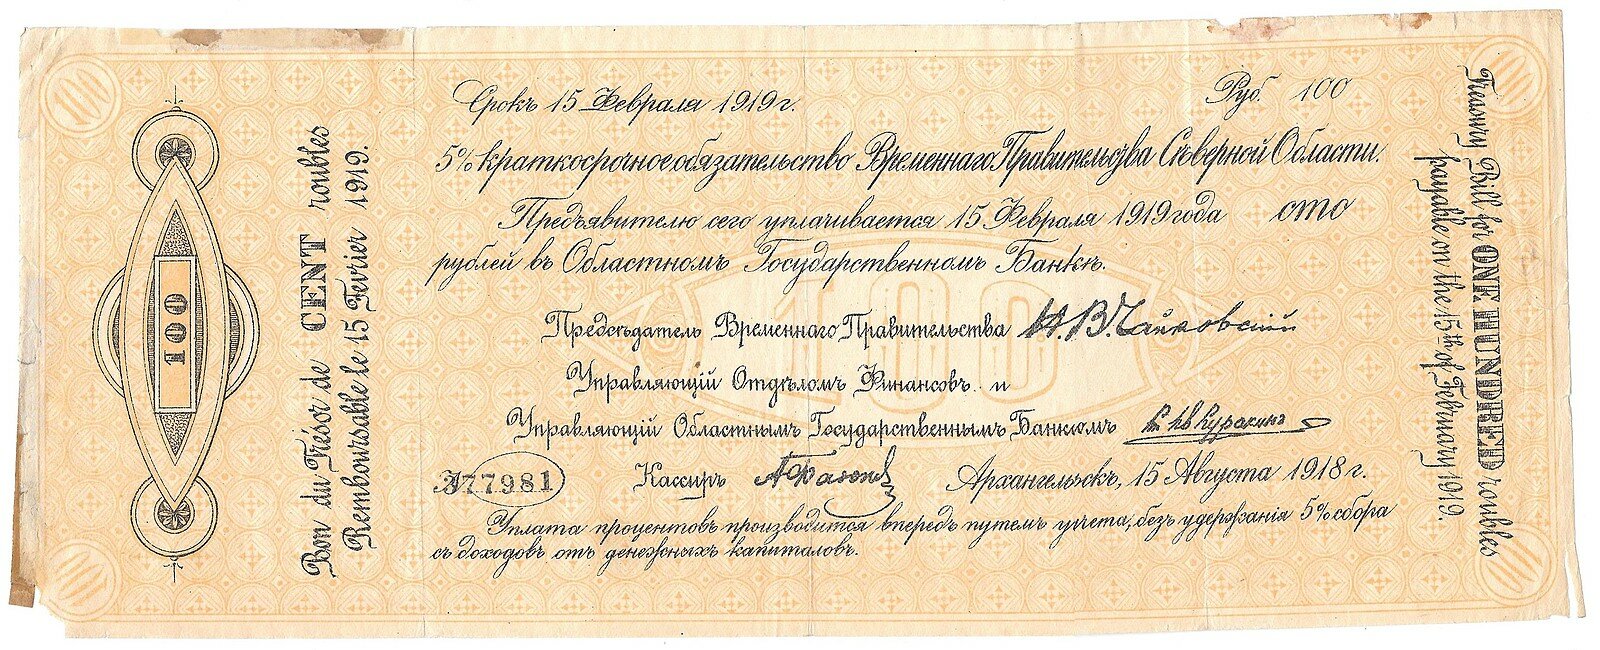 100
Bon du Trésor de CENT roubles
Remboursable le 15 Fevrier 1919.
Срокъ 15 Февраля 1919 г.
Руб. 100
5% краткосрочное обязательство Временнаго Правительства Сѣверной Области.
Предъявителю сего уплачивается 15 Февраля 1919 года сто
рублей въ Областномъ Государственномъ Банкѣ.
100
Предсѣдатель Временнаго Правительства Н. В. Чайковскій
Управляющій Отдѣломъ Финансовъ и
Управляющій Областнымъ Государственнымъ Банкомъ
377981
Кассиръ
Архангельскъ, 15 Августа 1918 г.
Уплата процентовъ производится впередъ путемъ учета, безъ удержанія 5% сбора
съ доходовъ отъ денежныхъ капиталовъ.
Treasury Bill for ONE HUNDRED roubles
payable on the 15th of February 1919.